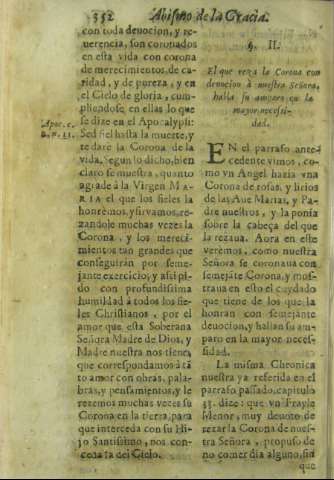 352 Abismo de la Gracia.
con toda deuocion, y re-
uerencia, son coronados
en esta vida con corona
de merecimientos, de ca-
ridad, y de pureza, y en
el Cielo de gloria, cum-
pliendose en ellas lo que
se dize en el Apocalypsi:
Apoc. c. 2. n. 11.
Sed fiel hasta la muerte, y
te darè la Corona de la
vida. Segun lo dicho, bien
claro se muestra, quanto
agrade à la Virgen MA-
RIA el que los fieles la
honremos, y sirvamos, re-
zandole muchas vezes la
Corona, y los mereci-
mientos tan grandes que
conseguiràn por seme-
jante exercicio; y assi pi-
do con profundissima
humildad à todos los fie-
les Christianos, por el
amor que esta Soberana
Señora Madre de Dios, y
Madre nuestra nos tiene,
que correspondamos à tã-
to amor con obras, pala-
bras, y pensamientos, y le
rezemos muchas vezes su
Corona en la tierra, para
que interceda con su Hi-
jo Santissimo, nos con-
ceda la del Cielo.
§. II.
El que reza la Corona con
deuocion à nuestra Señora,
halla su amparo en la
mayor necessi-
dad.
EN el parrafo ante-
cedente vimos, co-
mo vn Angel hazia vna
Corona de rosas, y lirios
de las Aue Marias, y Pa-
dre nuestros, y la ponia
sobre la cabeça del que
la rezaua. Aora en este
veremos, como nuestra
Señora se coronaua con
semejãte Corona, y mos-
traua en esto el cuydado
que tiene de los que la
honran con semejante
deuocion, y hallan su am-
paro en la mayor neces-
sidad.
La misma Chronica
nuestra ya referida en el
parrafo passado, capitulo
37. dize: que vn Frayle
Menor, muy deuoto de
rezar la Corona de nues-
tra Señora, propuso de
no comer dia alguno, sin
que